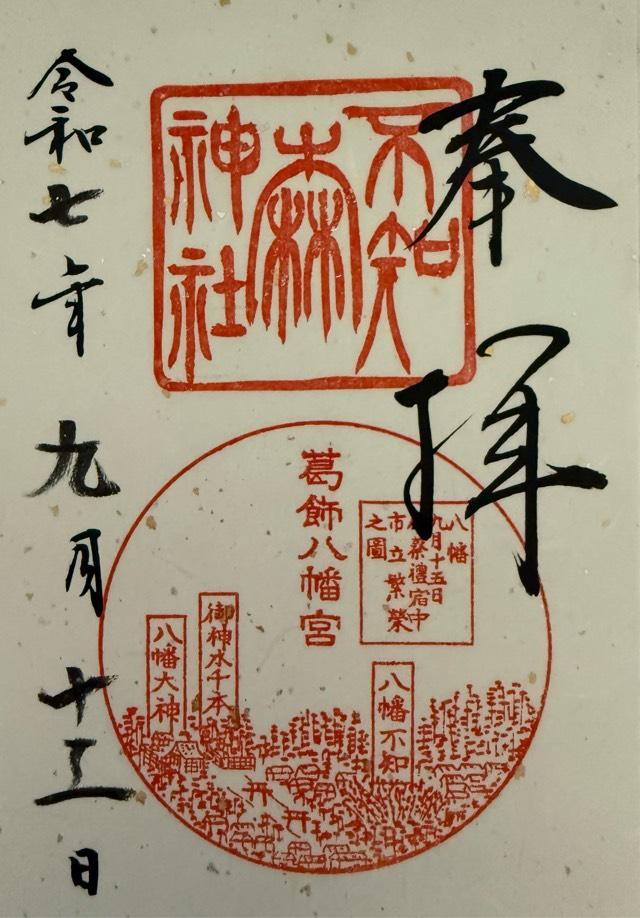 奉拝
不知
森
神社
葛飾八幡宮
八幡
九月十五日
祭禮宿中
市立繁榮
之圖
八幡不知
御神木千本
八幡大神
令和七年九月十五日